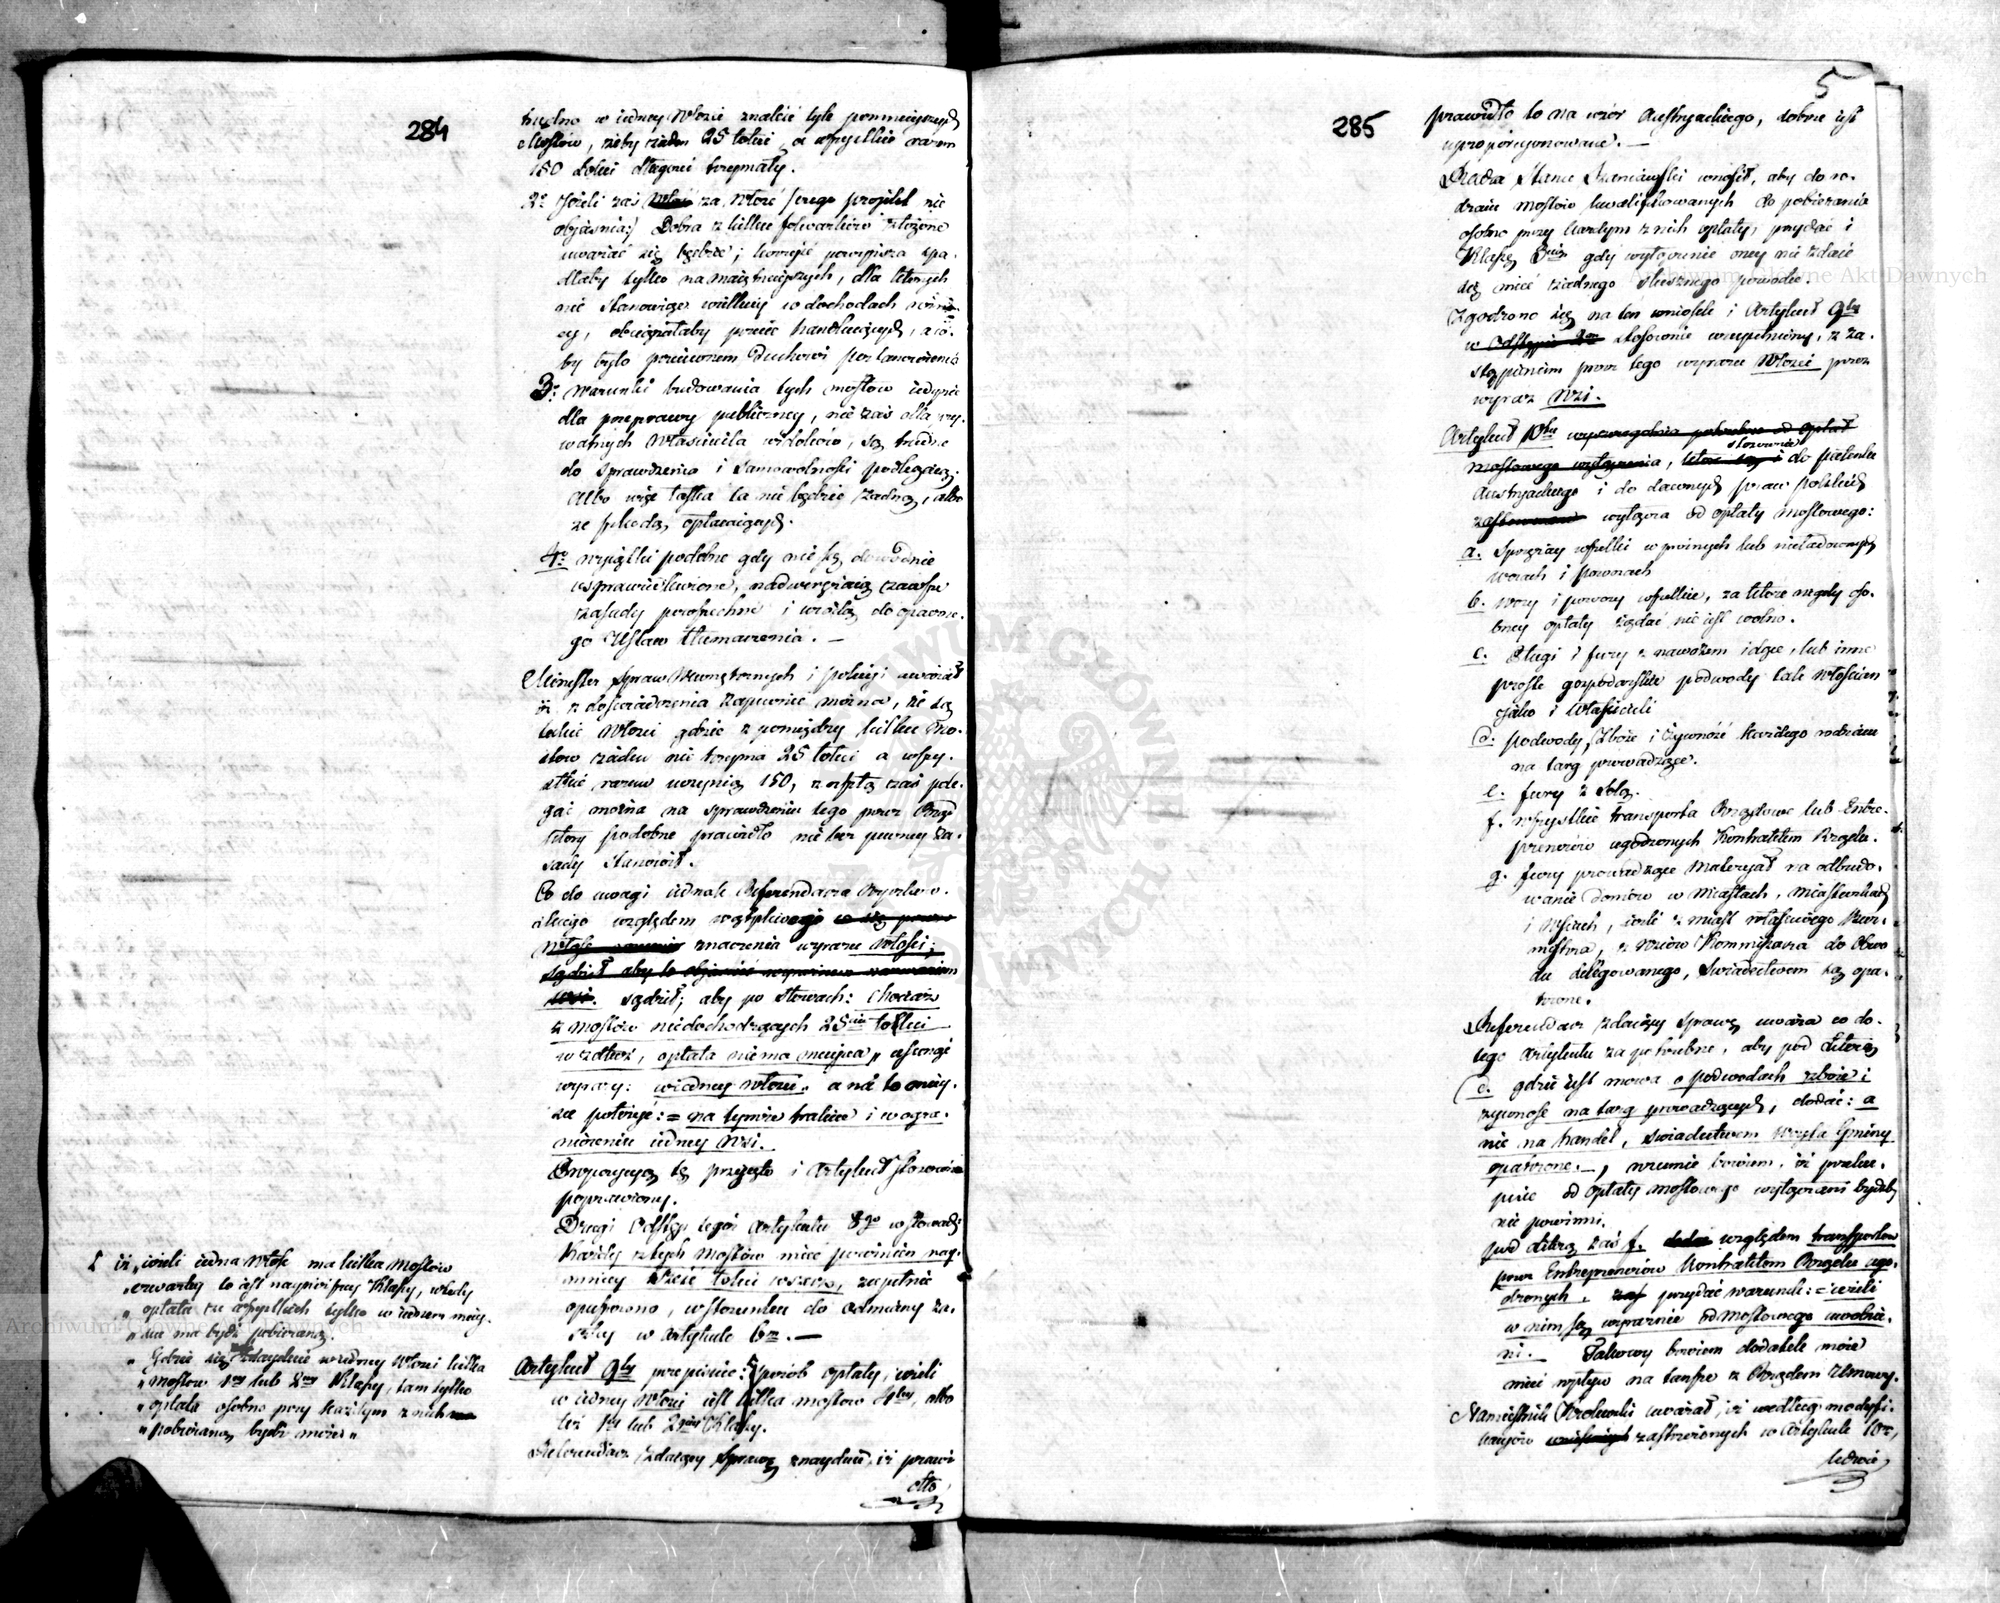 284
trudno w iedney Włości znaleść tyle pomnieyszych
Mostów, żeby żaden 25 łokci, a wszystkie razem
150 Łokci długości trzymały.
2º Jeżeli zaś za Włość /: czego projekt nie
objaśnia:/ Dobra z kilku folwarków złożone
uważać się będzie; korzyść powyższa spa-
dłaby tylko na maiętnieyszych, dla których
nie stanowiąc wielkiey w dochodach różni-
cy, obciążałaby przecie handluiących, a to
by było przeciwnem Duchowi postanowienia
3º warunki budowania tych mostów iedynie
dla przeprawy publiczney, nie zaś dla pry-
watnych Właściciela widoków, są trudne
do sprawdzenia i samowolności podlegaią.
Albo więc łaska ta nie będzie żadną, albo
ze szkodą opłacaiących.
4º wyiątki podobne gdy nie są dowodnie
usprawiedliwione, nadwerężaią zawsze
zasady powszechne i wiodą do opaczne-
go Ustaw tłumaczenia. —
Minister Spraw Wewnętrznych i Policyi uważał
iż z doświadczenia zapewnić można, że są
takie Włości gdzie z pomiędzy kilku Mo-
stów żaden nie trzyma 25 łokci a wszy-
stkie razem uczynią 150, z resztą zaś pole-
gać można na sprawdzeniu tego przez Rząd
który podobne prawidło nie bez pewney za-
sady stanowił.
Co do uwagi iednak Referendarza
względem wątpliwego
znaczenia wyrazu Włości;
sądził aby to obiaśnić
sądził; aby po słowach: Chociaż
z mostów niedochodzących 25ciu łokci
wzdłuż, opłata niema mieysca„ usunąć
wyrazy: w iedney Włości„ a na to miey-
sce położyć: = na tymże trakcie i w ogra-
niczeniu iedney Wsi.
Propozycyą tę przyięto i Artykuł stosownie
poprawiony.
Drugi Odstęp tegoż Artykułu 8go w słowach:
Każdy z tych Mostów mieć powinien nay-
mniey sześć łokci wszerz, zupełnie
opuszczono, w stosunku do odmiany za-
szłey w Artykule 6m. —
Artykuł 9ty przepisuie: Sposób opłaty, ieżeli
w iedney Włości iest kilka mostów 4tey, albo
też 1ey lub 2giey Klassy.
Referendarz zdaiący Sprawę znayduie, iż prawi
dło
iż „ieżeli iedna Włość ma kilka Mostów
„czwartey to iest naypierwszey Klassy, wtedy
„opłata ze wszystkich tylko w iednem miey-
„scu ma bydź pobieraną.
„Gdzie się znayduie w iedney Włości kilka
„mostów 1ey lub 2ey Klassy, tam tylko
„opłata osobno przy każdym z nich
„pobieraną bydź może„
5
285
prawidło to na wzór Austryackiego, dobrze iest
uproporcyonowane. —
Radca Stanu Szaniawski wnosił, aby do ro-
dzaiu mostów kwalifikowanych do pobierania
osobno przy każdym z nich opłaty, przydać i
Klassę 3cią gdy wyłączenie oney nie zdaie
się mieć żadnego słusznego powodu.
Zgodzono się na ten wniosek i Artykuł 9ty
w Odstępie 2m stosownie uzupełniony, z za-
stąpieniem przez tego wyrazu Włości przez
wyraz Wsi.
Artykuł 10ty wyszczególnia potrzebne od opłat
mostowego wyłączenia, stosownie do patentu
Austryackiego i do dawnych praw polskich
wyłącza od opłaty mostowego:
a. Sprzężay wszelki w próżnych lub nieładownych
wozach i powozach
b. wozy i powozy wszelkie, za które nigdy oso-
bney opłaty żądać nie iest wolno.
c. Pługi i fury z nawozem idące, lub inne
proste gospodarskie podwody tak Włościan
iako i Właścicieli
d. podwody, Zboże i Żywność każdego rodzaiu
na targ prowadzące.
e. fury z Solą.
f. wszystkie transporta Rządowe lub Entre-
prenerów ugodzonych Kontraktem Rządu.
g. fury prowadzące Materyał na odbudo-
wanie Domów w Miastach, Miasteczkach
i Wsiach, ieżeli z miast właściwego Burz-
mistrza, z Wsiów Kommissarza do Obwo
du delegowanego, świadectwem są opa-
trzone.
Referendarz zdaiący Sprawę uważa co do
tego Artykułu za potrzebne, aby pod Literą
d. gdzie iest mowa o podwodach zboże i
żywność na targ prowadzących, dodać: a
nie na handel, świadectwem Wóyta Gminy
opatrzone. —, rozumie bowiem, iż przeku-
pnie od opłaty mostowego wyłączani bydź
nie powinni.
pod Literą zaś f. względem transportów
przez Entreprenerów Kontraktem Rządu ugo-
dzonych, przydać warunek: = ieżeli
w nim są wyraźnie od mostowego uwolnie-
ni. — Takowy bowiem dodatek może
mieć wpływ na tańsze z Rządem Umowy.
Namiestnik Królewski uważał, iż według modyfi-
kacyów zastrzeżonych w Artykule 10m,